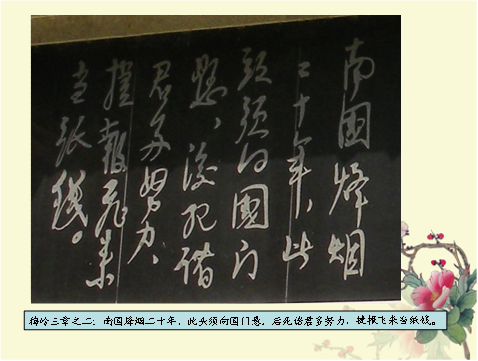 南國烽烟
二十年、此
頭須向國门
懸、後死諸
君多努力、
捷報飛来
当紙錢。
梅岭三章之二：南国烽烟二十年，此头须向国门悬。后死诸君多努力，捷报飞来当纸钱。